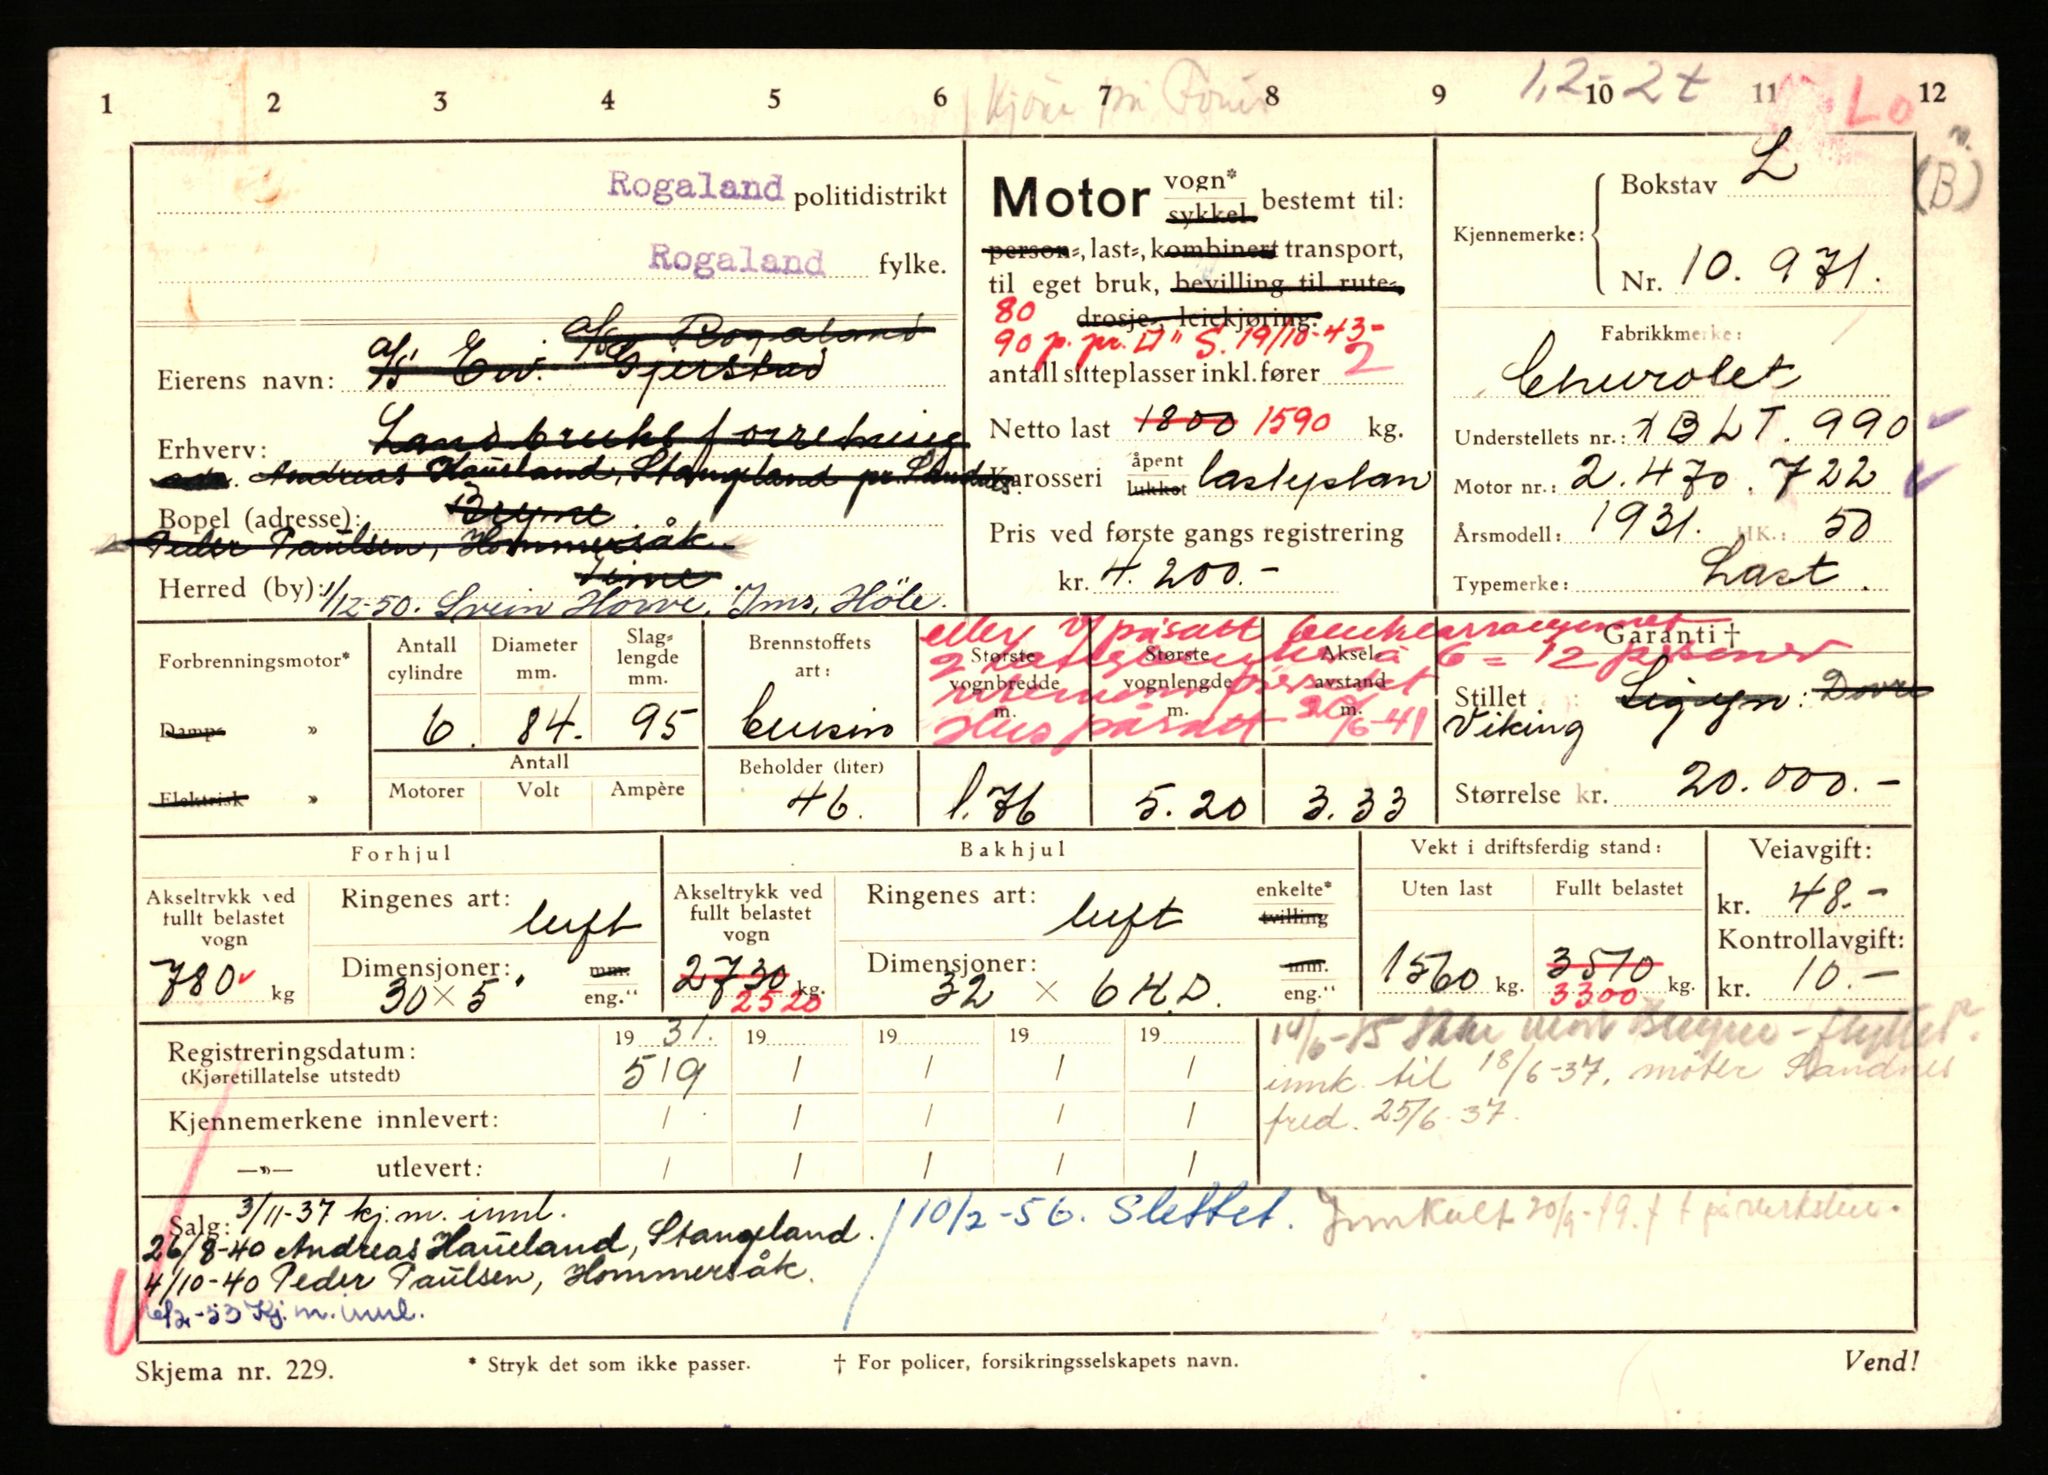 1 2 3 4 5 6 7 8 9 10 11 12
1,2-2t
Lo
(B)
Rogaland politidistrikt
Rogaland fylke.
Motor vogn* sykkel bestemt til:
person=, last=, kombinert transport,
til eget bruk, bevilling til rute=,
80 drosje, leiekjøring.
90 p. pr. D" S. 19/10-43-
antall sitteplasser inkl. fører 2
Netto last 1800 1590 kg.
Karosseri åpent lukket lasteplan
Pris ved første gangs registrering
kr. 4.200.-
Bokstav L
Kjennemerke:
Nr. 10.971.
Fabrikkmerke:
Chevrolet
Understellets nr.: 1BLT.990
Motor nr.: 2.470.722
Årsmodell: 1931. HK.: 50
Typemerke: Last.
a/s Rogaland
Eierens navn: a/s Eiv. Gjerstad
Erhverv: Landbruksforretning
Andreas Haueland, Stangeland pr. Sandnes.
Bopel (adresse): Bryne
Peder Paulsen, Hommersåk
Time
Herred (by): 1/12-50. Svein Horve, Ims, Höle.
Forbrenningsmotor*
Damp= »
Elektrisk »
Antall cylindre 6.
Diameter mm. 84.
Slag= lengde mm. 95
Antall
Motorer Volt Ampère
Brennstoffets art: bensin
Beholder (liter) 46.
eller v/ påsatt benkearrangement
2 à 6 = 12 personer
Hus påsatt 20/6-41
Største vognbredde m. 1.76
Største vognlengde m. 5.20
Aksel= avstand m. 3.33
Garanti †
Stillet: Sigyn: Dovre
Viking
Størrelse kr. 20.000.-
Forhjul
Akseltrykk ved fullt belastet vogn
780 kg
Ringenes art: luft
Dimensjoner: mm. eng."
30 × 5"
Bakhjul
Akseltrykk ved fullt belastet vogn
2730 kg.
2520
Ringenes art: luft enkelte* tvilling
Dimensjoner: mm. eng."
32 × 6 H.D.
Vekt i driftsferdig stand:
Uten last Fullt belastet
1560 kg. 3570 kg.
3300
Veiavgift:
kr. 48.-
Kontrollavgift:
kr. 10.-
19 31. 19 19 19 19
Registreringsdatum:
(Kjøretillatelse utstedt)
5/9 / / / /
Kjennemerkene innlevert: / / / / /
—»— utlevert: / / / / /
Bryne - flyttet
innk. til 18/6-37. møter Sandnes
fred. 25/6-37.
Salg: 3/11-37 kj.m. innl.
26/8-40 Andreas Haueland, Stangeland.
4/10-40 Peder Paulsen, Hommersåk.
6/2-53 Kj.m. innl.
10/2-56. Slettet.
Skjema nr. 229.
* Stryk det som ikke passer.
† For policer, forsikringsselskapets navn.
Vend!